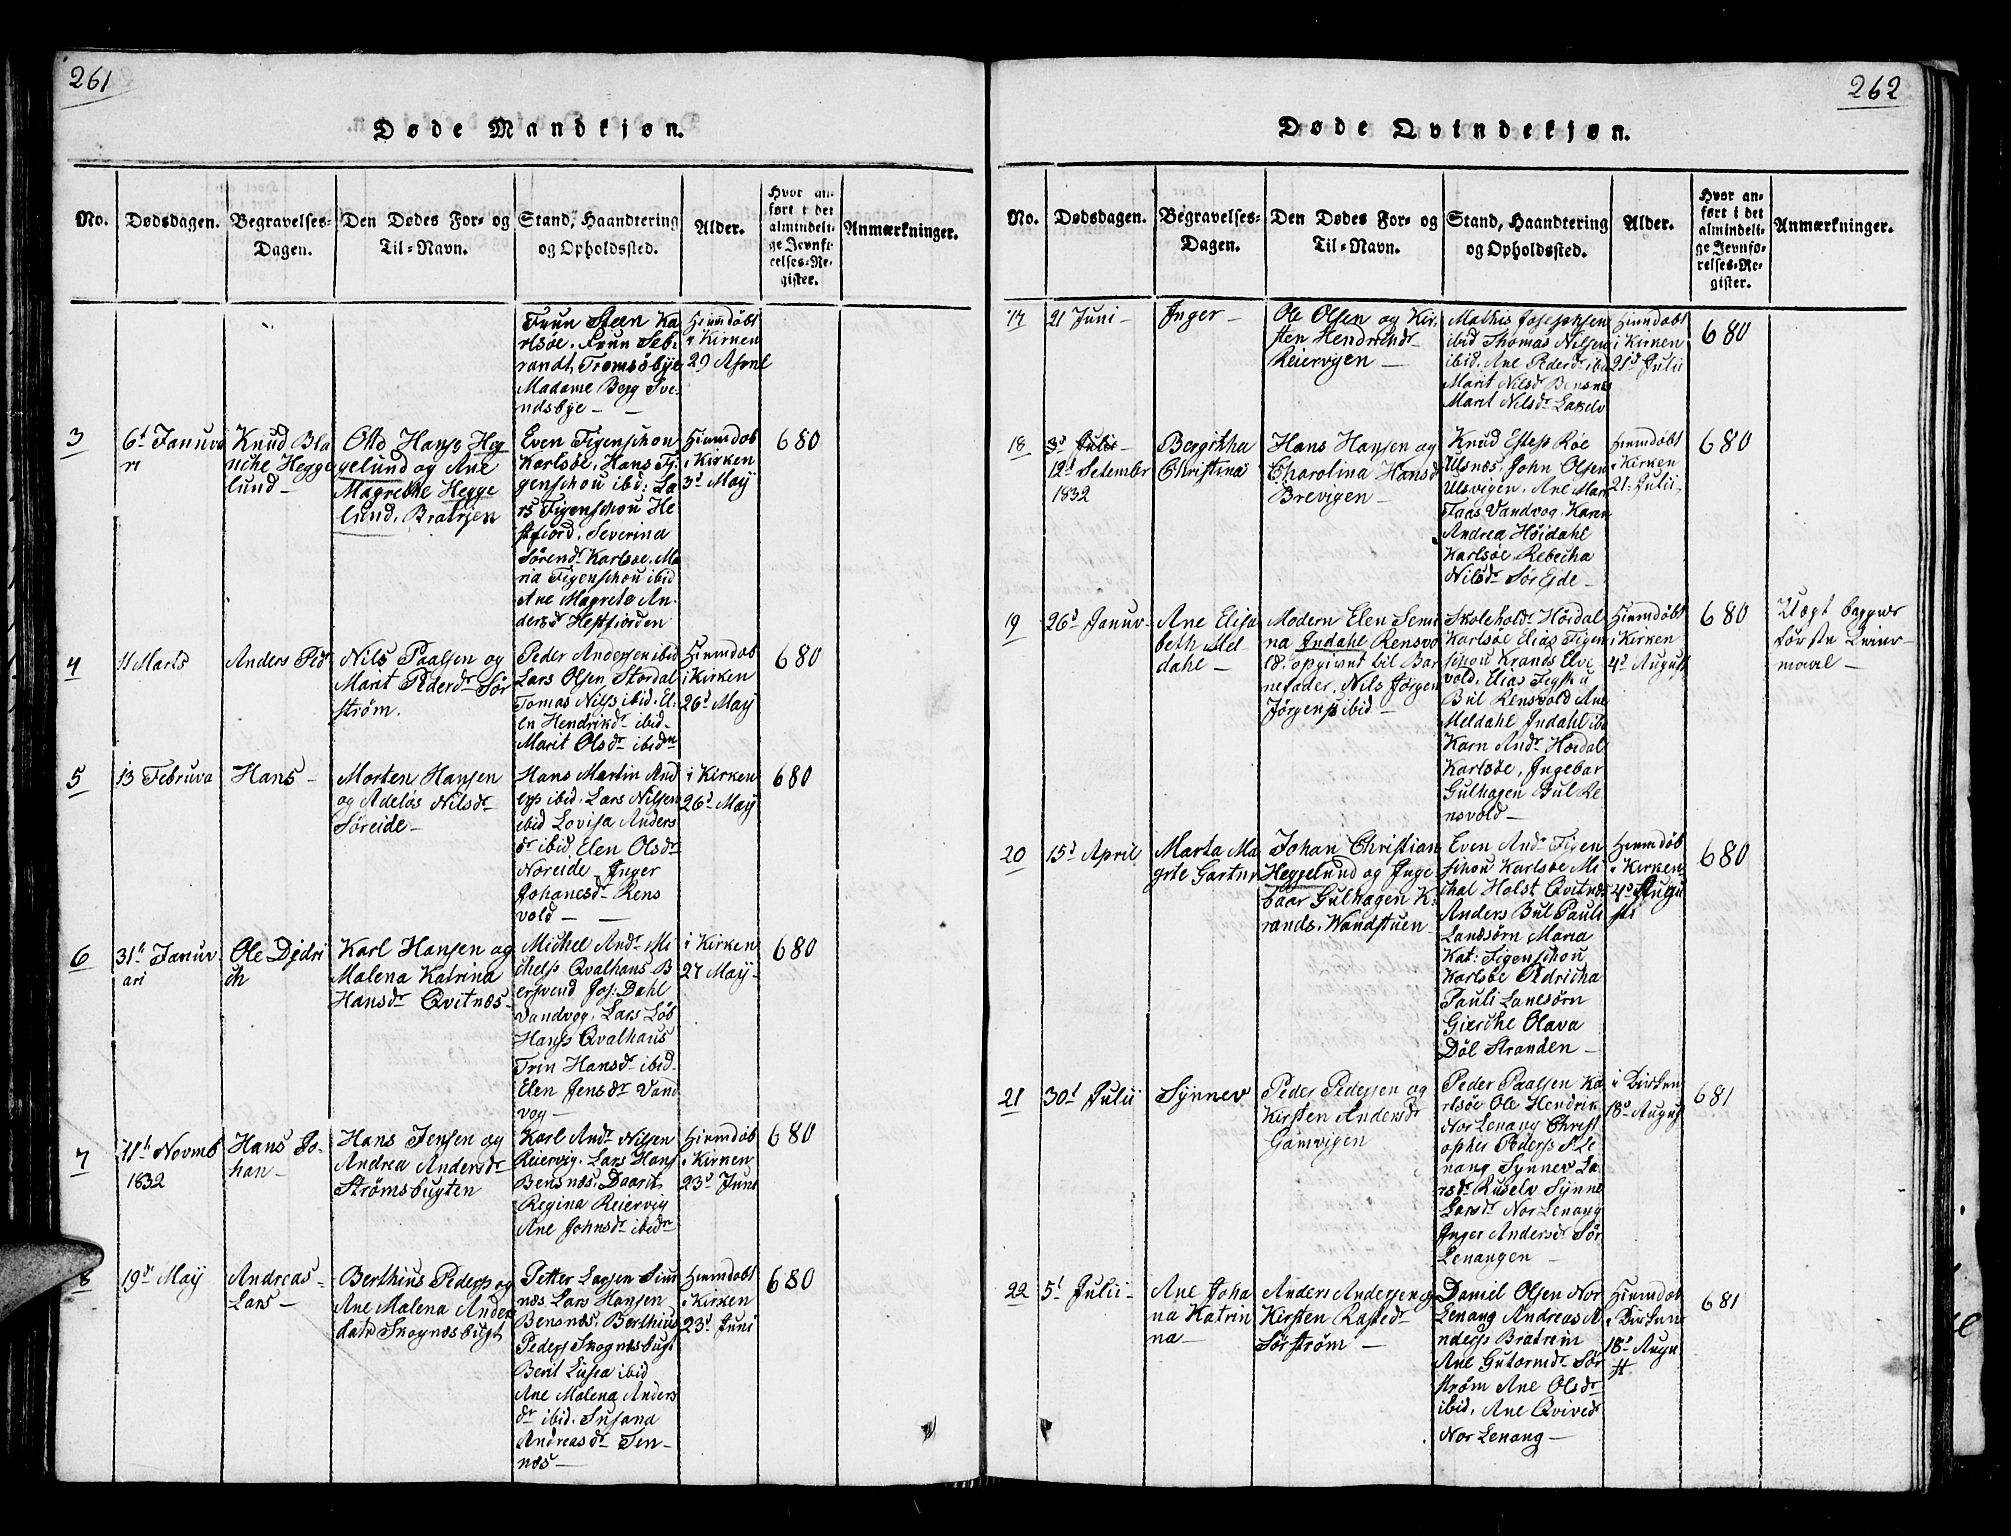 261
Døde Mandkjøn.
No.
Dødsdagen.
Begravelses-
Dagen.
Den Dødes For- og
Til-Navn.
Stand, Haandtering
og Opholdssted.
Alder.
Hvor an-
ført i det
almindeli-
ge Jevnfø-
relses-Re-
gister.
Anmærkninger.
Frun Steen Ka
rlsøe, Frun Seb-
randt Tromsøbye
Madame Berg Sve-
ndsbye-
Hiemdøbt
i Kirken
29 April
3
6t Januva
ri
Knud Bla
nche Hegge
lund-
Old Hansg Heg
gelund og Ane
Magrethe Hegge
lund, Bratrjen
Even Figenschou
Karlsøe, Hans Fi-
genschou ibid: La
rs Figenschou He
stfiord, Severina
Sørendr Karlsøe, Ma
ria Figenschou ibid
Ane Magrete An-
dersd Hestfiorden
Hiemdøb
i Kirken
3d Maij
680
4
11 Marts
Anders Ped
Nils Paalsen og
Marit Pedersdr Sør
strøm.
Peder Andersen ibid
Lars Olsen Stordal
Tomas Nilss ibid. El-
en Hendrikdr ibid-
Marit Olsdr ibidm
Hiemdøb
i Kirken
26d Maij
680
5
13 Februva
Hans-
Morten Hansen
og Adeløs Nilsdr
Søreide-
Hans Martin And
erss ibid, Lars Nilsen
ibid Lovisa Anders
dr ibid, Elen Olsdr
Noreide Inger
Johanesdr Rens
vold-
i Kirken
26d Maij
680
6
31t Januv
ari
Ole Didri
ch
Karl Hansen og
Malena Katrina
Hansdr Qvitnæs-
Michel Andr Mi
chelss Qvalhaus B
ersvend Jos: Dahl
Vandvog, Lars Løb
Hanss Qvalhaus
Trin Hansdr ibid-
Elen Jensdr Vand
vog-
i Kirken
27 Maij-
680
7
11t Novmb
1832
Hans Jo-
han-
Hans Jensen og
Andrea Andersdr
Strømsbugten
Karl Andr Nilsen
Reiervig, Lars Hans
Bensnæs, Daarit
Regina Reiervig
Ane Johnsdr ibidr
Hiemdøb
i Kirken
23d Juni
680
8
19d Maij
Andreas-
Lars-
Berthius Pederss og
Ane Malena Ander
datr Skognæsbugt
Petter Larsen Sim
næs Lars Hansen
Bensnæs, Berthius
Pederss Skognesbugt
Berit Lusia ibid
Ane Malena Anders
dr ibid, Susana
Andreasdr Ten-
næs-
Hiemdøbt
i Kirken
23d Juni
680
262
Døde Qvindekjøn.
No.
Dødsdagen.
Begravelses-
Dagen.
Den Dødes For- og
Til-Navn.
Stand, Haandtering
og Opholdssted.
Alder.
Hvor an-
ført i det
almindeli-
ge Jevnfø-
relses-Re-
gister.
Anmærkninger.
17
21 Juni-
Inger-
Ole Olsen og Kir-
sten Hendriksdr
Reiervigen-
Mathis Josephsen
ibid Thomas Nilsen
ibid, Ane Pederdr ibid
Marit Nilsd Bensnes
Marit Nilsdr Lakselv
Hiemdøbt
i Kirken
21d Julii
680
18
3d Juli-
12d Setembr
1832
Bergitha
Christina
Hans Hansen og
Charolina Hansd
Brevigen-
Knud Eless Røe
Ulsnæs, John Olsen
Ulsvigen, Ane Mari
Faas Vandvog, Karen
Andrea Høidahl
Karlsøe, Rebecha
Nilsdr Sør Ejde-
Hiemdøbt
i Kirken
21: Julii-
680
19
26d Januv
Ane Elisa
beth Mel
dahl-
Modern Elen Semi
na Indahl Rensvo
ld, opgivet til Bar
nefader, Nils Jørgen
Jørgenss ibid-
Skoleholdr Høidal
Karlsøe Elias Figen
schou Kranes Elve
vold, Elias Figsh u
Bul Rensvold Ane
Meldahl Indahl ibi
Karn Andr Høidal
Karlsøe, Ingebar
Gulhagen Bul Re
nsvold-
Hiemdøbt
i Kirken
4d August
680
Uægt begges
første Leier-
maal-
20
15d April
Marta Ma
grte Gartnr
Johan Christian
Heggelund og Inge
baar Gulhagen K:
rands, Wandstuen-
Even Andr Figen
schou Karlsøe Mi
chal Holst Qvitnæs
Anders Bul Pauli
Lanesørn Maria
Kat: Figenschou
Karlsøe Aldricha
Pauli Lanesørn
Gierche Olava
Døl Stranden-
Hiemdøb
i Kirken
4d Augu
sti
680
21
30t Julii
Synnev
Peder Pedersen og
Kirsten Andersdr
Gamvigen
Peder Paalsen Ka
rlsøe Ole Hendrik
Nor Lenang Christ
opher Pederss S. Le
nang Synnev La-
rsdr Ruselv Synne
Larsdr Nor Lenang
Inger Andersdr Sør
Lenangen-
i Kirken
18d Augus
681
22
5t Julii-
Ane Joha
na Katrin
na-
Anders Andersen og
Kirsten Rastedr
Sørstrøm-
Daniel Olsen Nor
Lenang Andreas A
nderss Bratrein
Ane Gutormdr Sør
strøm Ane Olsdr
ibid, Ane Qvivedr
Nor Lenang-
Hiemdøb
i Kirken
18d Augu
st
681